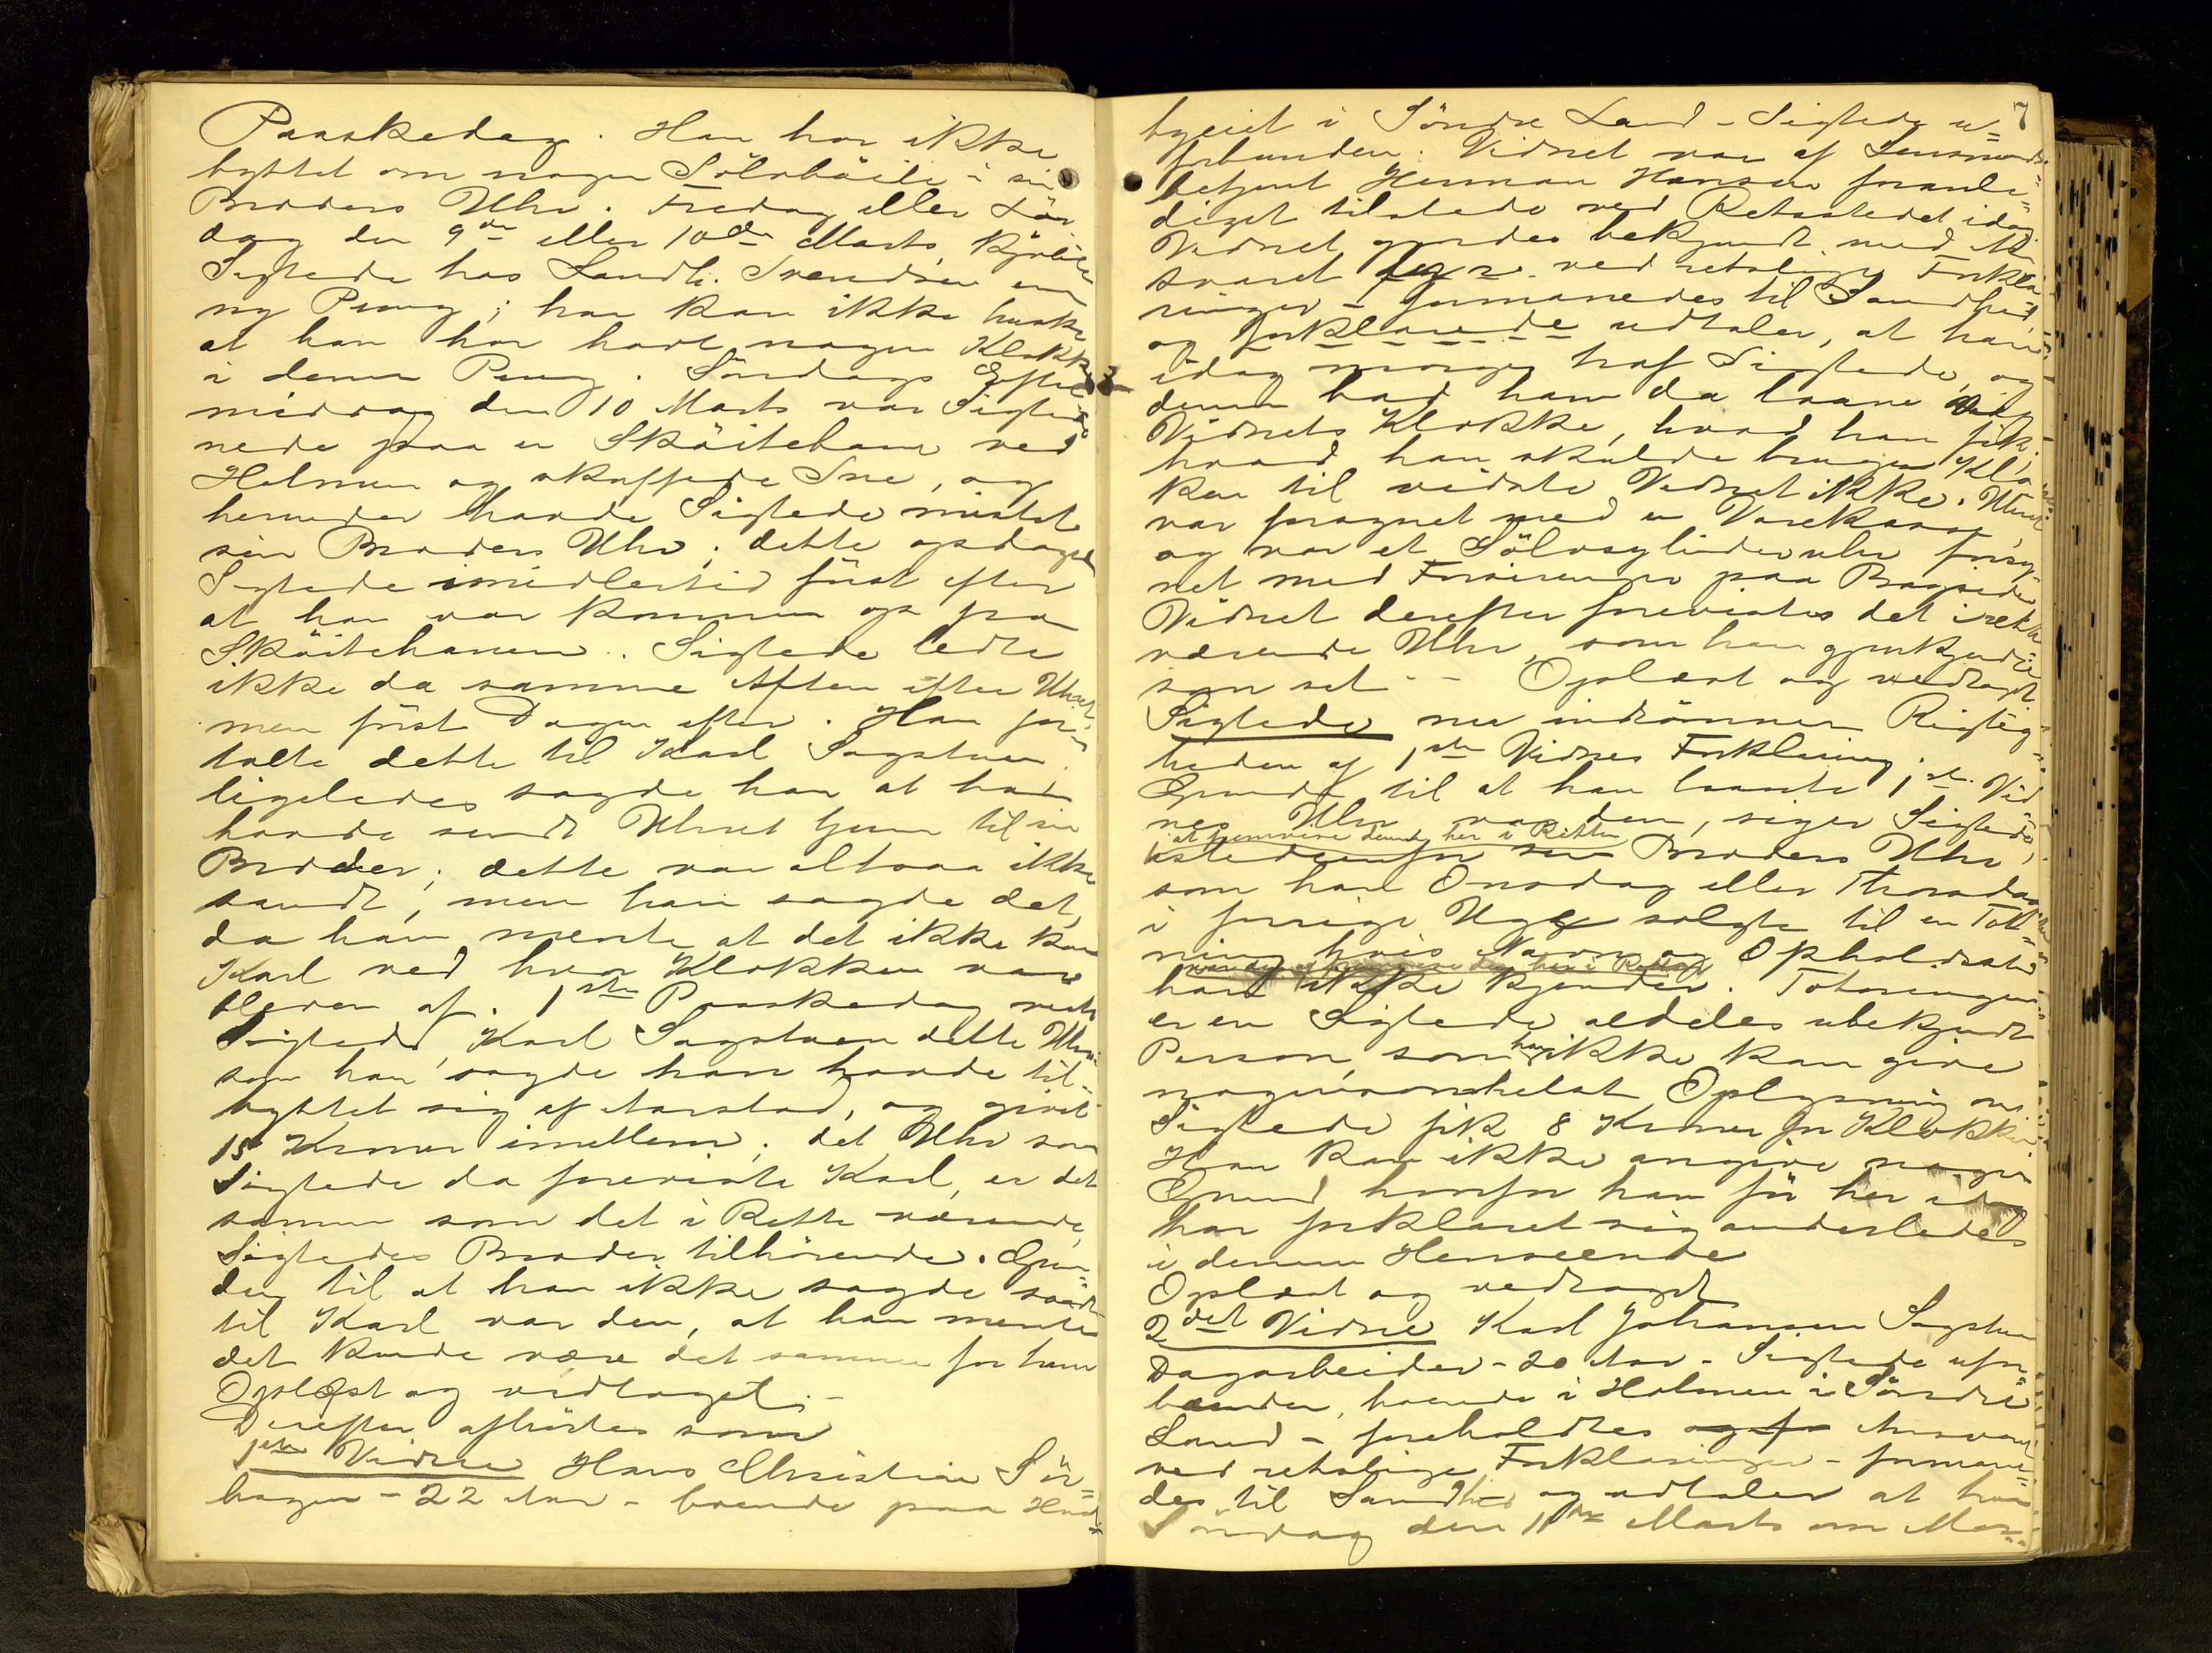 Paaskedag. Han har ikke
byttet om nogen Sölvböile i sin
Broders Uhr. Fredag eller Lör
dag den 9de eller 10de Marts kjöbte
Sigtede hos Landh. Svendsen en
ny Pung; han kan ikke huske
at han har havt nogen Klokke
i denne Pung. Söndags Efter
middag den 10 Marts var Sigtede
nede paa en Sköitebane ved
Holmen og skuffede Sne, og
herunder havde Sigtede mistet
sin Broders Uhr; dette opdaged
Sigtede imidlertid först efter
at han var kommen op fra
Sköitebanen. Sigtede ledte
ikke da samme Aften efter Uhret
men först Dagen efter. Han for-
talte dette til Karl Sogstuen
ligeledes sagde han at han
havde sendt Uhret hjem til sin
Broder; dette var altsaa ikke
sandt, men han sagde det,
da han mente at det ikke kom
Karl ved hvor Klokken var
bleven af. 1ste Paaskedag viste
Sigtede Karl Sogstuen dette Uhr
som han sagde han havde til-
byttet sig af Aarstad, og givet
15 Kroner imellem; det Uhr som
Sigtede da foreviste Karl, er det
samme som det i Rette værende,
Sigtedes Broder tilhörende. Grun-
den til at han ikke sagde sandt
til Karl var den, at han mente
det kunde være det samme for ham
Oplæst og vedtaget.-
Derefter afhörtes som
1ste Vidne Hans Christian Sör-
hagen - 22 Aar - boende paa Had-
7
bgeiet i Söndre Land - Sigtede u=
forbunden. Vidnet var af Lensmands-
betjent Herman Hansen foranle-
diget tilstede ved Retsstedet idag.
Vidnet gjordes bekjendt med An
svaret ved retslige Forkla-
ringer - formanedes til Sandhed,
og forklarende udtaler, at han
idag morges traf Sigtede, og
denne bad ham da laane
Vidnets Klokke, hvad han fik;
hvad han skulde bruge Klok
ken til vidste Vidnet ikke. Uhret
var forsynet med en
og var et Sölvcylinderuhr forsy-
net med Forsiringer paa Bagsiden
Vidnet derefter forevistes det i rette
værende Uhr, som han gjenkjendte
som sit - Oplæst og vedtaget
Sigtede nu indrömmer Rigtig-
heden af 1ste Vidnes Forklaring;
Grunden til at han laante 1ste Vid
nes Uhr var den, siger Sigtede,
at fremvise denne her i Retten
istedenfor sin Broders Uhr
som han Onsdag eller Thorsdag
i forrige Uge solgte til en Tot-
ning hvis Navn og Opholdssted
han ikke kjender. Totningen
er en Sigtede aldeles ubekjendt
Person, som han ikke kan give
nogensomhelst Oplysning om.
Sigtede fik 8 Kroner for Klokken
Han kan ikke angive nogen
Grund hvorfor han för her idag
har forklaret sig anderledes
i denne Henseende
Oplæst og vedtaget
2det Vidne Karl Johansen Sogstuen
Dagarbeider - 20 Aar - Sigtede ufor-
bunden, boende i Holmen i Söndre
Land - foreholdtes Ansvaret
ved retslige Forklaringer - formane-
des til Sandhed og udtaler at han
Söndag den 11te Marts om Mor-